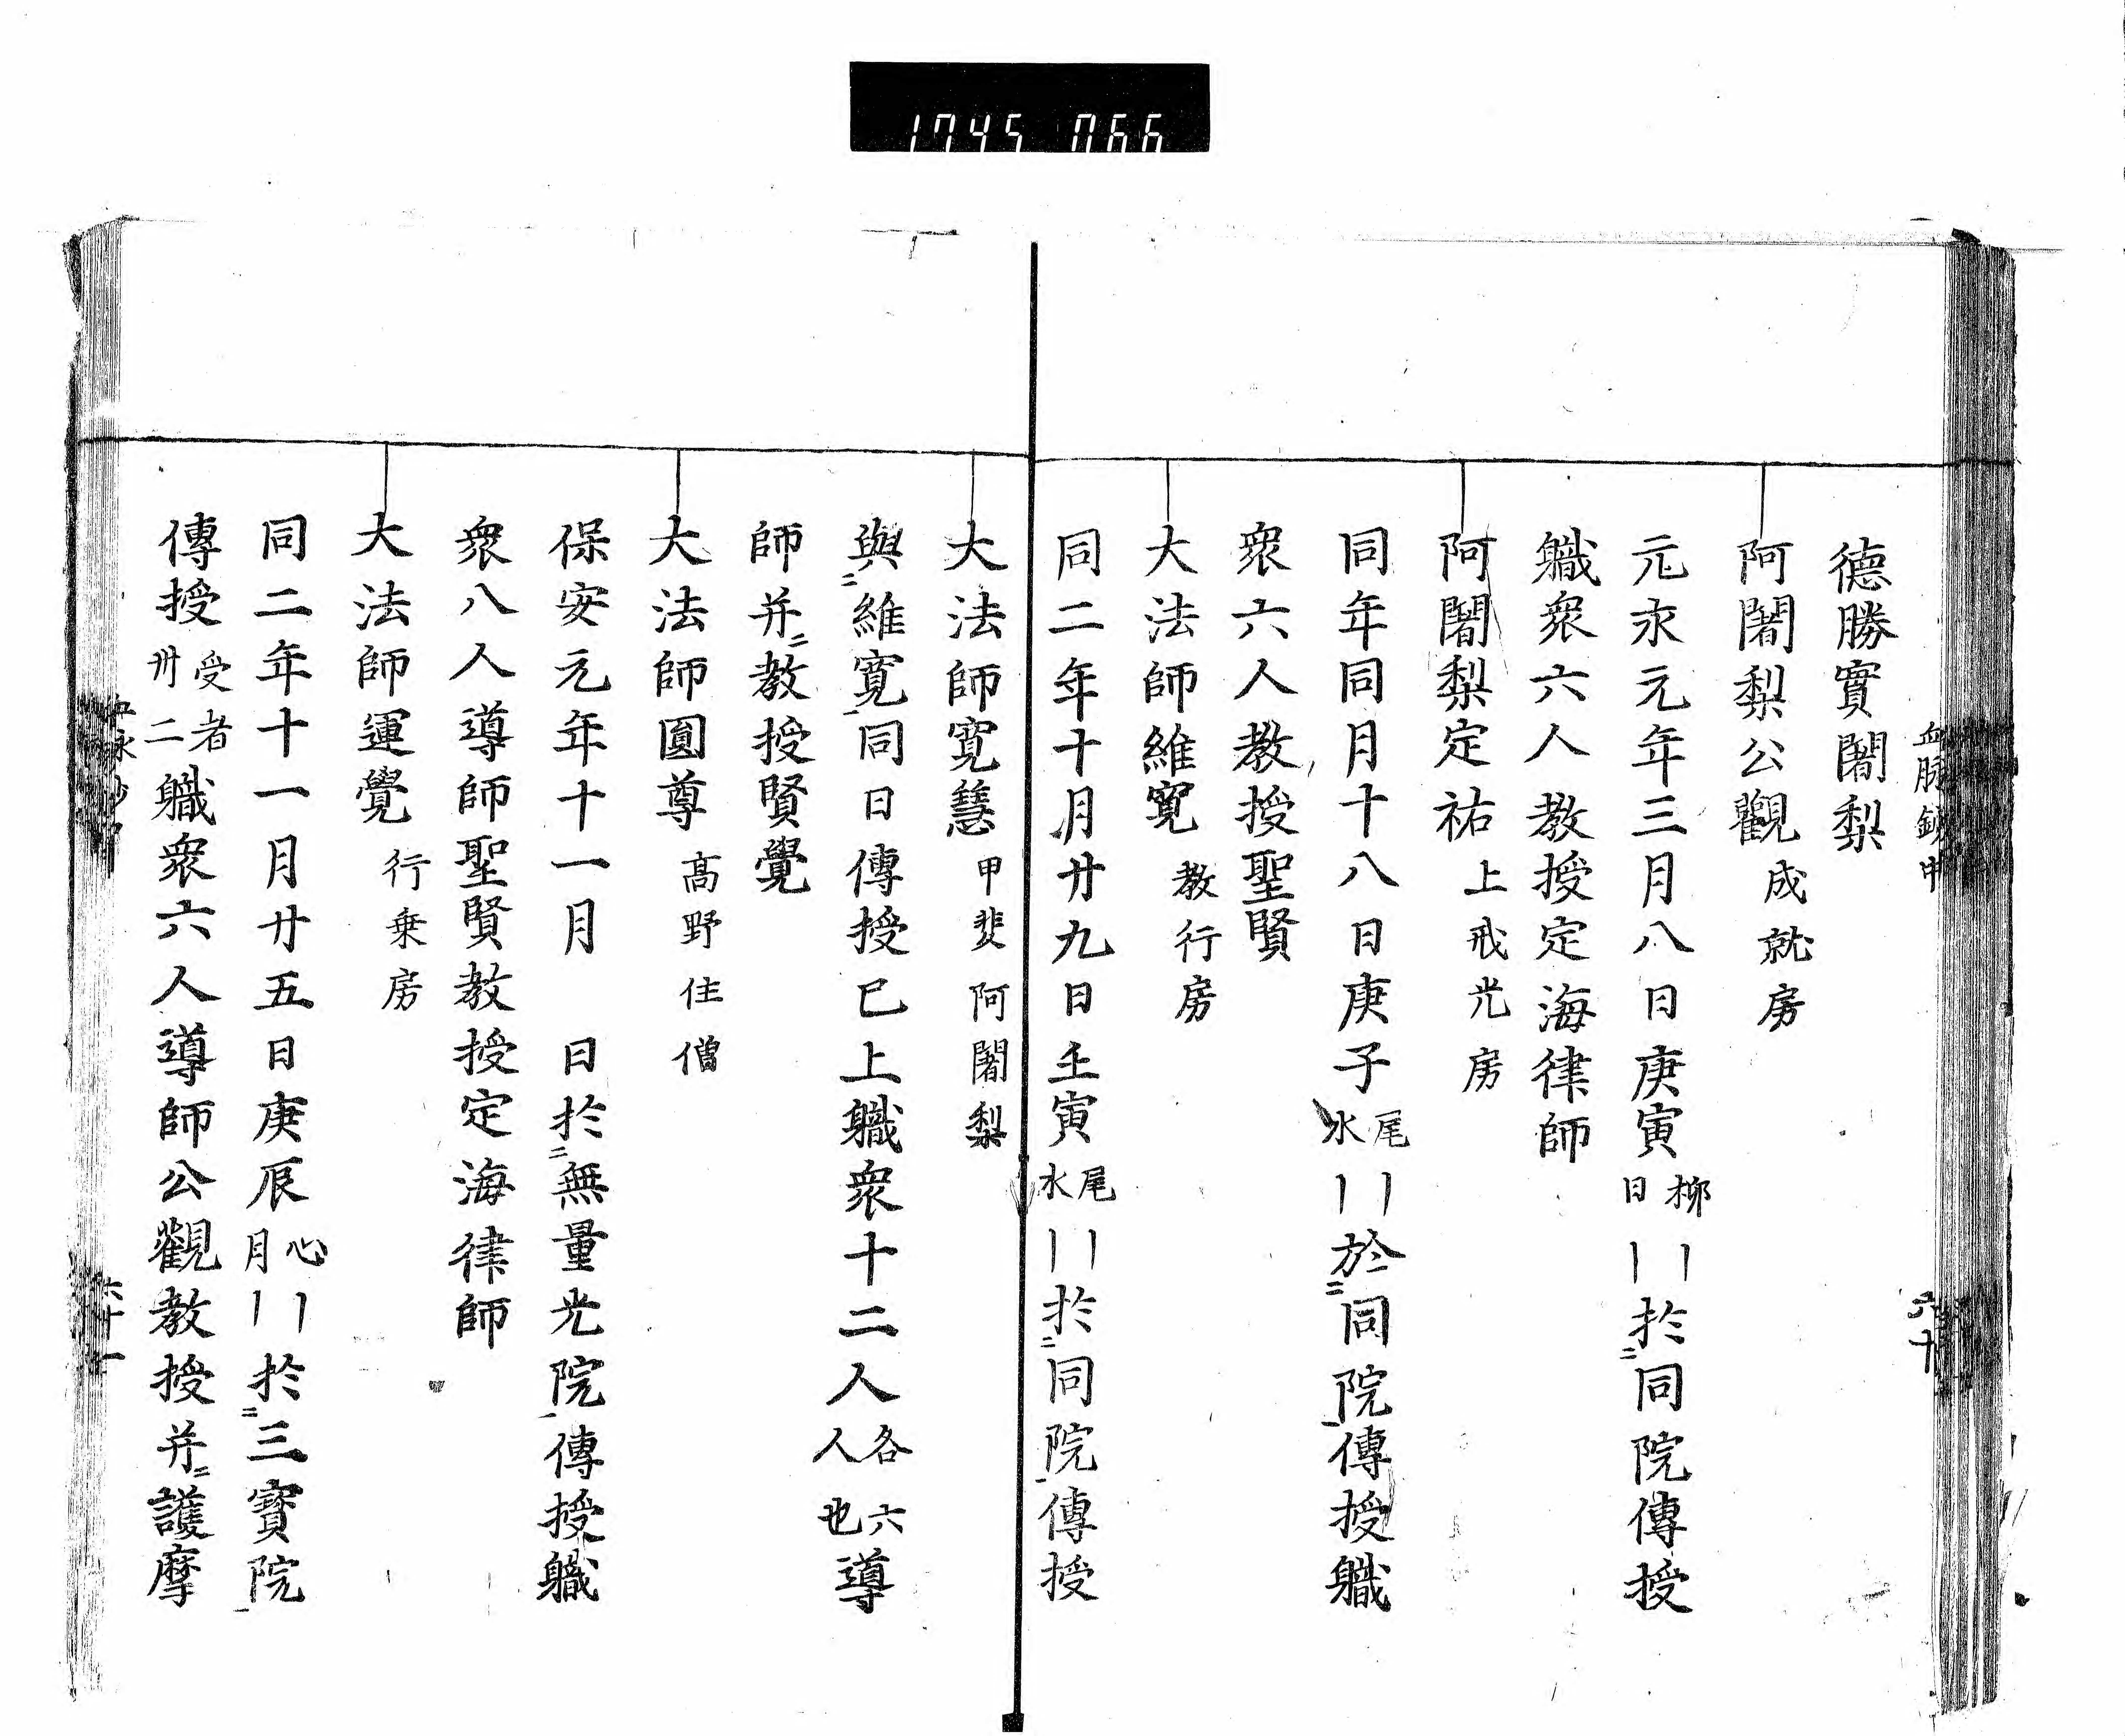 1745 066
血脉鈔中 六十
德勝實闍梨
阿闍梨公觀 成就房
元永元年三月八日庚寅 柳日 〡〡於二同院傳授
職衆六人教授定海律師
阿闍梨定祐 上戒光房
同年同月十八日庚子 尾水 〡〡於二同院一傳授職
衆六人教授聖賢
大法師維寛 教行房
同二年十月廿九日壬寅 尾水 〡〡於二同院一傳授
大法師寛慧 甲斐阿闍梨
與二維寛一同日傳授已上職衆十二人 各六人也 導
師并二教授賢覺
大法師圓尊 高野住僧
保安元年十一月 日於二無量光院一傳授職
衆八人導師聖賢教授定海律師
大法師運覺 行乗房
同二年十一月廿五日庚辰 心月 〡〡於二三寳院一
傳授 受者卅二 職衆六人導師公觀教授并二護摩
六十一